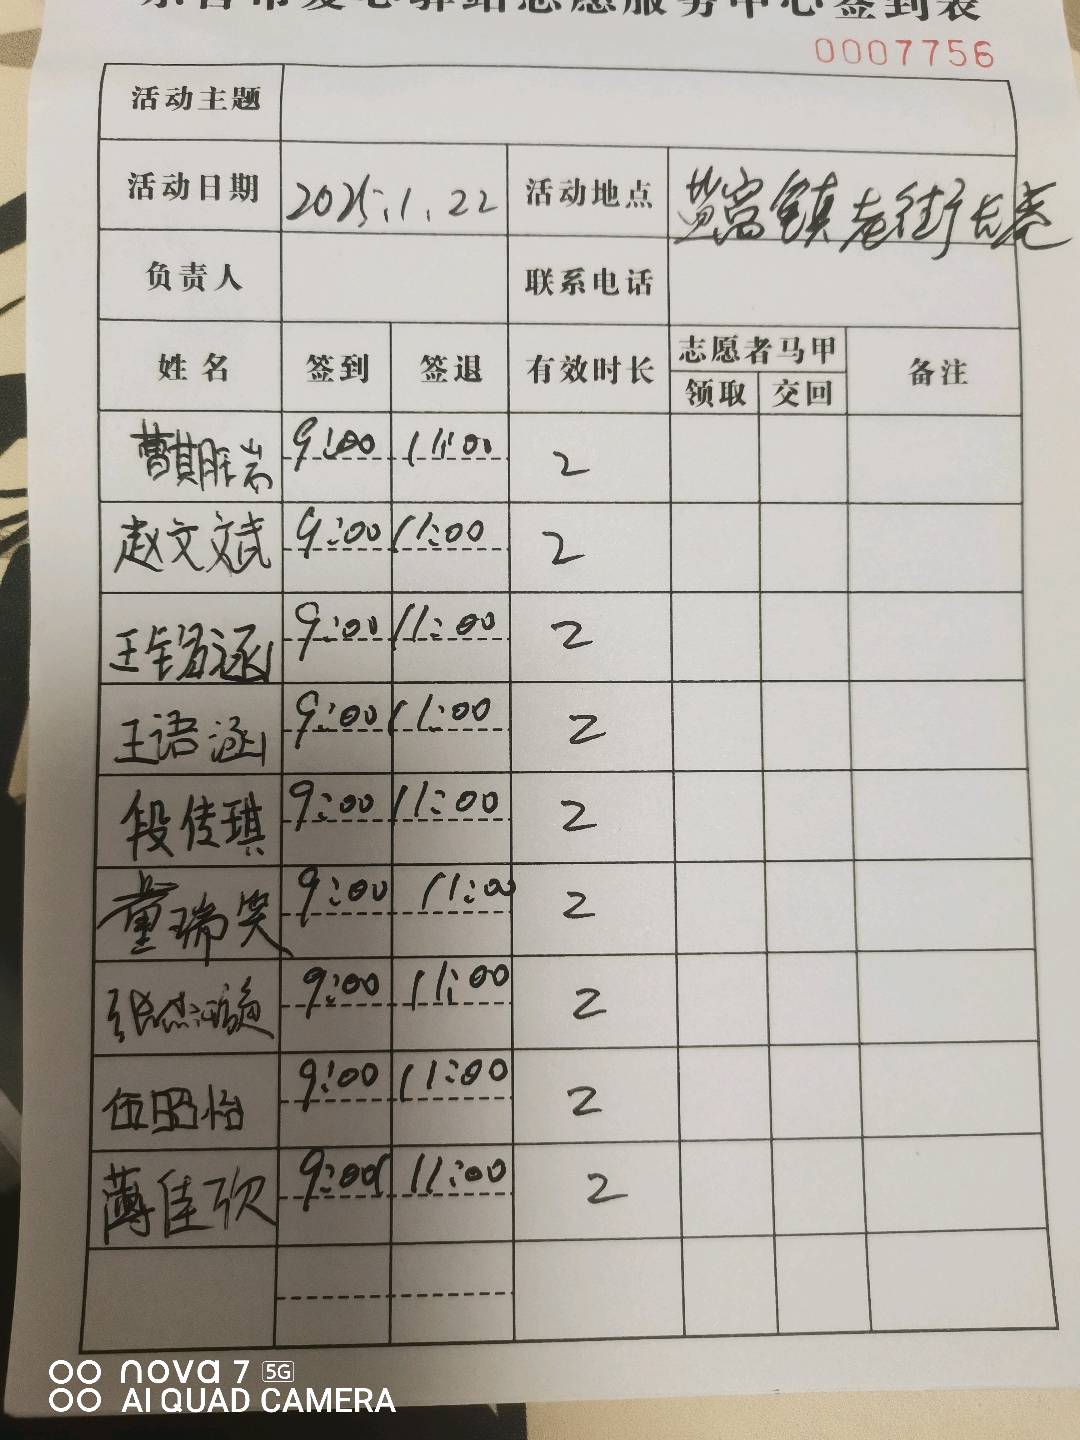 志愿服务中心签到表
0007756
活动主题
活动日期 2025.1.22 活动地点 黄窑镇老街长巷
负责人 联系电话
姓名 签到 签退 有效时长 志愿者马甲 备注
领取 交回
9:00 11:00 2
赵文斌 9:00 11:00 2
9:00 11:00 2
王语涵 9:00 11:00 2
段佳琪 9:00 11:00 2
童瑞笑 9:00 11:00 2
9:00 11:00 2
伍昭怡 9:00 11:00 2
薄佳欣 9:00 11:00 2
nova 7 5G
AI QUAD CAMERA